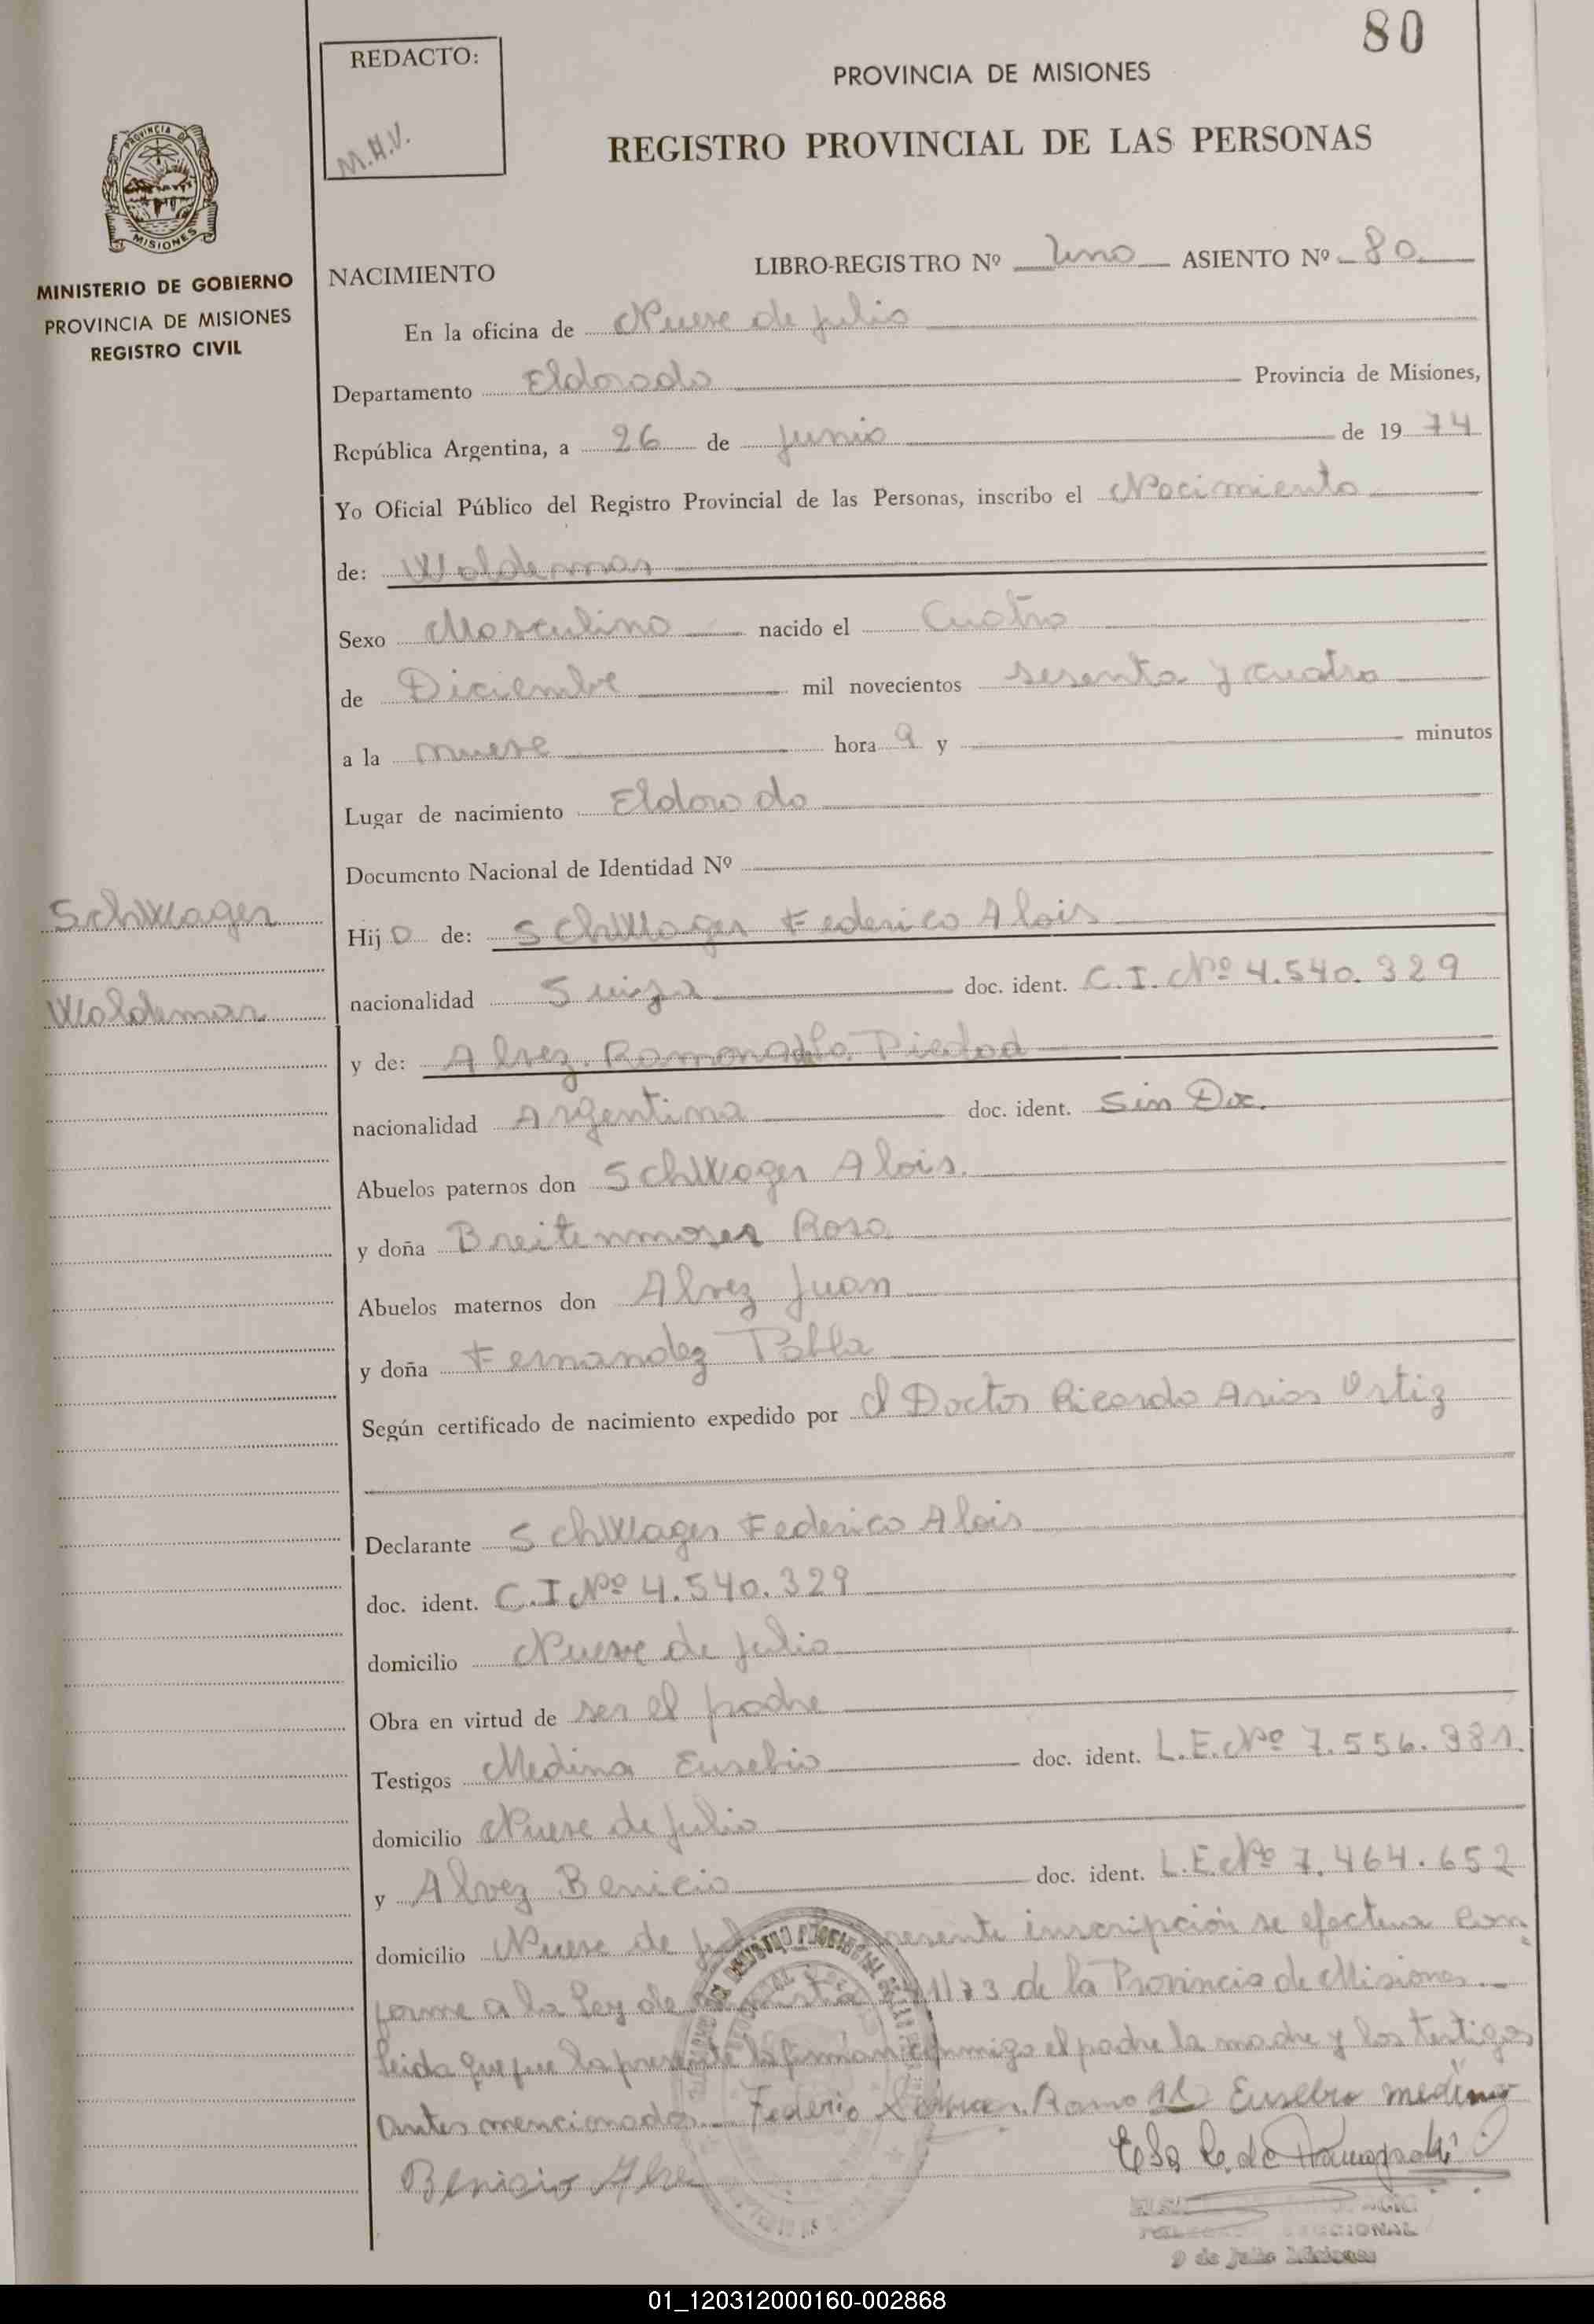 80
REDACTO:
M.A.V.
PROVINCIA DE MISIONES
REGISTRO PROVINCIAL DE LAS PERSONAS
PROVINCIA DE
MISIONES
MINISTERIO DE GOBIERNO
PROVINCIA DE MISIONES
REGISTRO CIVIL
NACIMIENTO LIBRO-REGISTRO Nº Uno ASIENTO Nº 80
En la oficina de Nueve de julio
Departamento Eldorado Provincia de Misiones,
República Argentina, a 26 de junio de 19 74
Yo Oficial Público del Registro Provincial de las Personas, inscribo el Nacimiento
de: Waldemar
Sexo Masculino nacido el Cuatro
de Diciembre mil novecientos sesenta y cuatro
a la nueve hora 9 y minutos
Lugar de nacimiento Eldorado
Documento Nacional de Identidad Nº
Schwager
Hij o de: Schwager Federico Alois
Waldemar
nacionalidad Suiza doc. ident. C.I. Nº 4.540.329
y de: Alvez Ramona de la Piedad
nacionalidad Argentina doc. ident. Sin Doc.
Abuelos paternos don Schwager Alois.
y doña Breitenmoser Rosa
Abuelos maternos don Alvez Juan
y doña Fernandez Pabla
Según certificado de nacimiento expedido por el Doctor Ricardo Arias Ortiz
Declarante Schwager Federico Alois
doc. ident. C.I Nº 4.540.329
domicilio Nueve de julio
Obra en virtud de ser el padre
Testigos Medina Eusebio doc. ident. L.E. Nº 7.556.981
domicilio Nueve de Julio
y Alvez Benicio doc. ident. L.E. Nº 7.464.652
domicilio Nueve de presente inscripción se efectua con
forme a la Ley de de la Provincia de Misiones
leida que fue la presente la firman conmigo el padre la madre y los testigos
antes mencionados Ramo Eusebio medina
Benicio
CCIONAL
9 de Julio Misiones
01_120312000160-002868